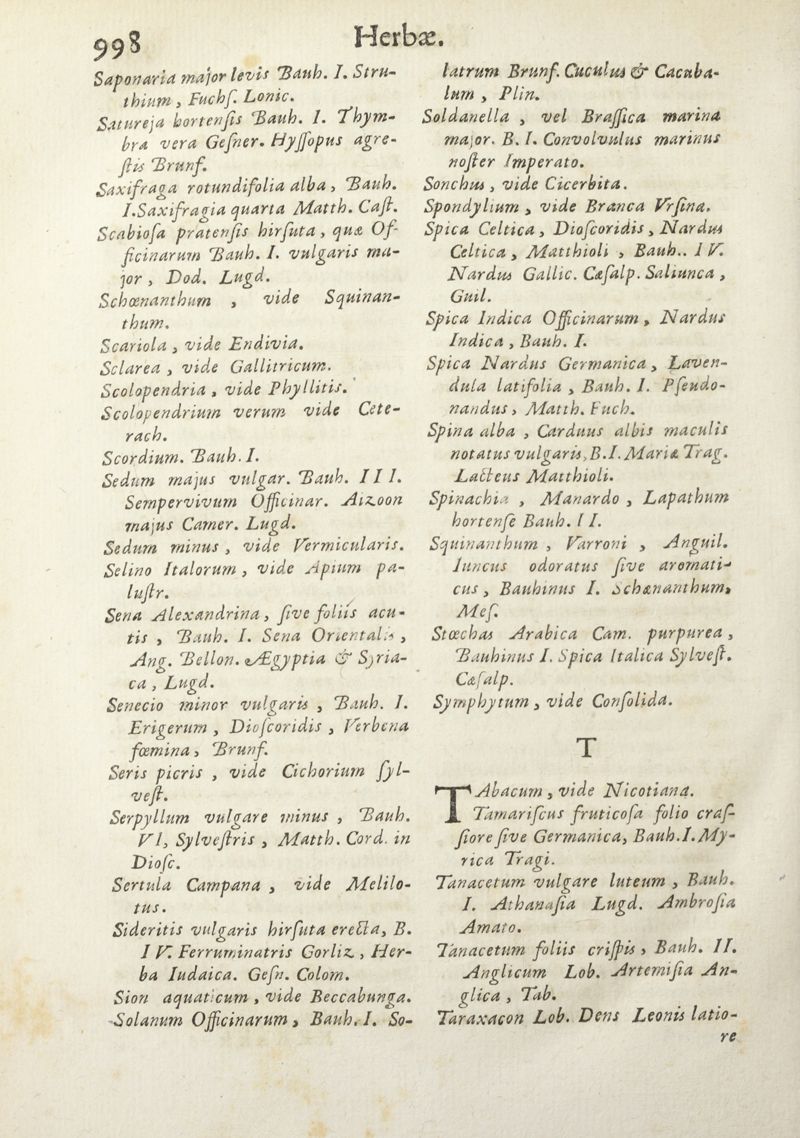 998
Herbæ.
Saponaria major levis Bauh. I. Stru-
thium , Fuchſ. Lonic.
Satureja hortenſis Bauh. I. Thym-
bra vera Geſner. Hyſſopus agre-
ſtis Brunf.
Saxifraga rotundifolia alba , Bauh.
I. Saxifragia quarta Matth. Caſt.
Scabioſa pratenſis hirſuta , quæ Of-
ficinarum Bauh. I. vulgaris ma-
jor , Dod. Lugd.
Schœnanthum , vide Squinan-
thum.
Scariola , vide Endivia.
Sclarea , vide Gallitricum.
Scolopendria , vide Phyllitis.
Scolopendrium verum vide Cete-
rach.
Scordium. Bauh. I.
Sedum majus vulgar. Bauh. III.
Sempervivum Officinar. Aizoon
majus Camer. Lugd.
Sedum minus , vide Vermicularis.
Selino Italorum , vide Apium pa-
luſtr.
Sena Alexandrina , ſive foliis acu-
tis , Bauh. I. Sena Orientalis ,
Ang. Bellon. Ægyptia & Syria-
ca , Lugd.
Senecio minor vulgaris , Bauh. I.
Erigerum , Dioſcoridis , Verbena
fœmina , Brunf.
Seris picris , vide Cichorium ſyl-
veſt.
Serpyllum vulgare minus , Bauh.
VI, Sylveſtris , Matth. Cord. in
Dioſc.
Sertula Campana , vide Melilo-
tus.
Sideritis vulgaris hirſuta erecta, B.
IV. Ferruminatris Gorliz. , Her-
ba Iudaica. Geſn. Colom.
Sion aquaticum , vide Beccabunga.
Solanum Officinarum , Bauh. I. So-
latrum Brunf. Cuculus & Cacuba-
lum , Plin.
Soldanella , vel Braſſica marina
major. B. I. Convolvulus marinus
noſter Imperato.
Sonchus , vide Cicerbita.
Spondylium , vide Branca Vrſina.
Spica Celtica , Dioſcoridis , Nardus
Celtica , Matthioli , Bauh.. IV.
Nardus Gallic. Cæſalp. Saliunca ,
Guil.
Spica Indica Officinarum , Nardus
Indica , Bauh. I.
Spica Nardus Germanica , Laven-
dula latifolia , Bauh. I. Pſeudo-
nandus , Matth. Fuch.
Spina alba , Carduus albis maculis
notatus vulgaris, B. I. Mariæ Trag.
Lacteus Matthioli.
Spinachia , Manardo , Lapathum
hortenſe Bauh. II.
Squinanthum , Varroni , Anguil.
Iuncus odoratus ſive aromati-
cus , Bauhinus I. Schænanthum,
Meſ.
Stœchas Arabica Cam. purpurea ,
Bauhinus I. Spica Italica Sylveſt.
Cæſalp.
Symphytum , vide Conſolida.
T
TAbacum , vide Nicotiana.
Tamariſcus fruticoſa folio craſ-
ſiore ſive Germanica, Bauh. I. My-
rica Tragi.
Tanacetum vulgare luteum , Bauh.
I. Athanaſia Lugd. Ambroſia
Amato.
Tanacetum foliis criſpis , Bauh. II.
Anglicum Lob. Artemiſia An-
glica , Tab.
Taraxacon Lob. Dens Leonis latio-
re